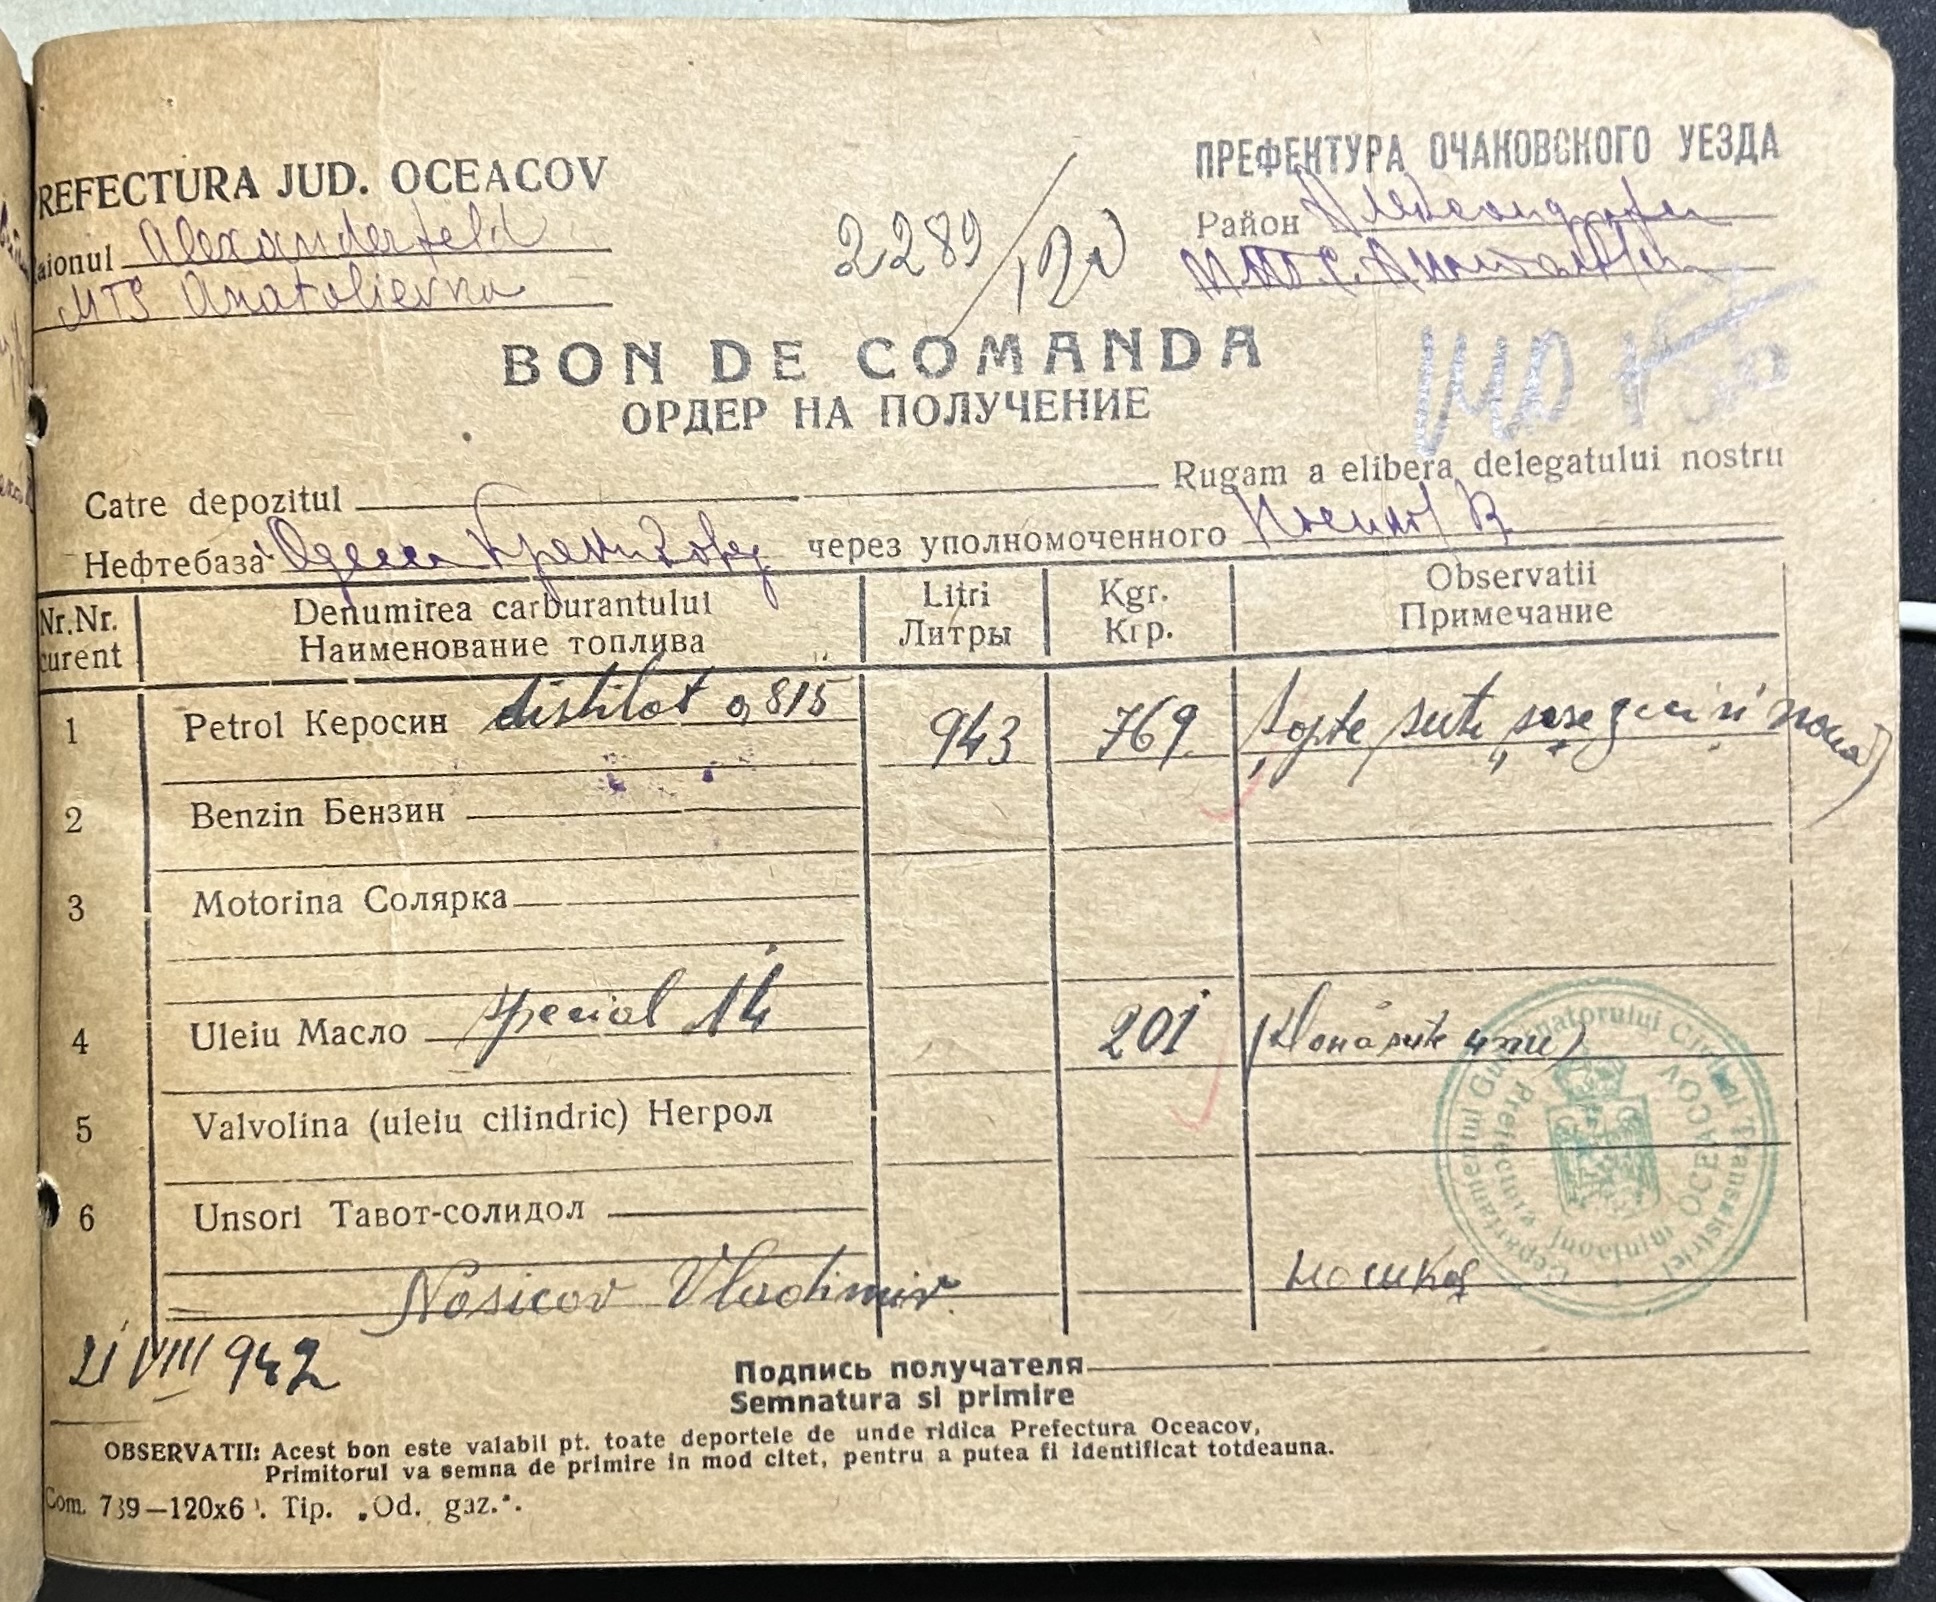 REFECTURA JUD. OCEACOV
aionul Alexanderfeld
MTS Anatolievna
2289
ПРЕФЕКТУРА ОЧАКОВСКОГО УЕЗДА
Район
BON DE COMANDA
ОРДЕР НА ПОЛУЧЕНИЕ
Catre depozitul Rugam a elibera delegatului nostru
Нефтебаза Одесса через уполномоченного Носиков В
Nr.Nr. curent
Denumirea carburantului
Наименование топлива
Litri
Литры
Kgr.
Кгр.
Observatii
Примечание
1 Petrol Керосин distilat 0,815 943 769 șapte sute șasezeci și noua)
2 Benzin Бензин
3 Motorina Солярка
4 Uleiu Масло special 14 201 (Două sute unu)
5 Valvolina (uleiu cilindric) Негрол
6 Unsori Тавот-солидол
Nosicov Vladimir
21 VIII 942
Подпись получателя
Semnatura si primire
OBSERVATII: Acest bon este valabil pt. toate deportele de unde ridica Prefectura Oceacov,
Primitorul va semna de primire in mod citet, pentru a putea fi identificat totdeauna.
Com. 739—120x6 . Tip. „Od. gaz.".
Guvernatorului Civil al Transnistriei
Prefectura Județului OCEACOV